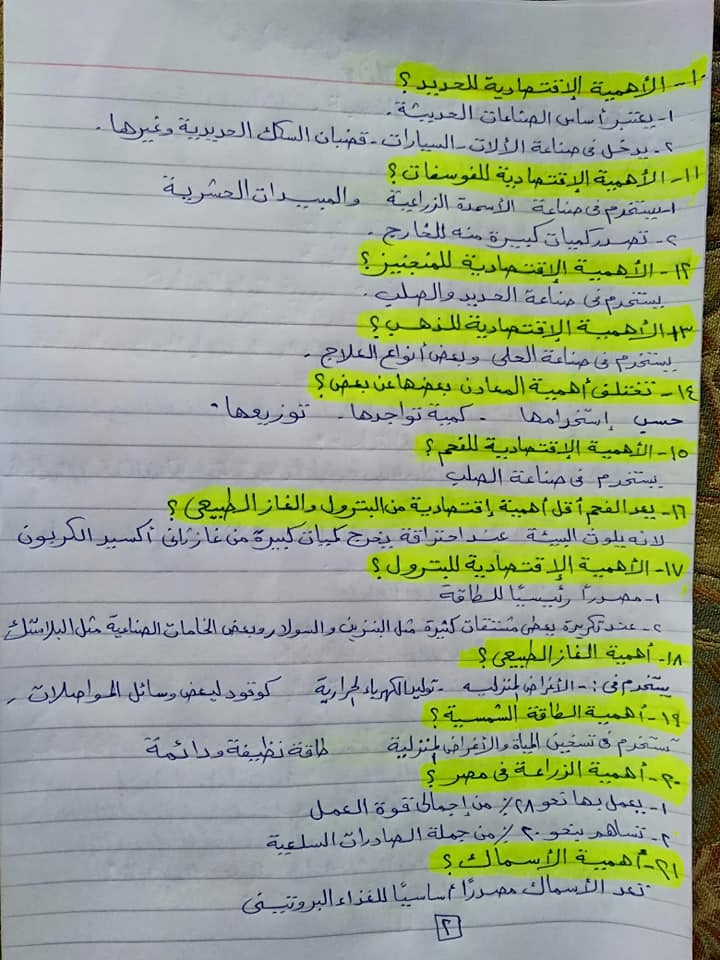 ١٠- الأهمية الإقتصادية للحديد؟
١- يعتبر أساس الصناعات الحديثة.
٢- يدخل فى صناعة الألات - السيارات - قضبان السكك الحديدية وغيرها.
١١- الأهمية الإقتصادية للفوسفات؟
١- يستخدم فى صناعة الأسمدة الزراعية والمبيدات الحشرية
٢- تصدر كميات كبيرة منه للخارج.
١٢- الأهمية الإقتصادية للمنجنيز؟
يستخدم فى صناعة الحديد والصلب.
١٣- الأهمية الإقتصادية للذهب؟
يستخدم فى صناعة الحلى وبعض أنواع العلاج.
١٤- تختلف أهمية المعادن بعضها عن بعض؟
حسب إستخدامها - كمية تواجدها - توزيعها.
١٥- الأهمية الإقتصادية للفحم؟
يستخدم فى صناعة الصلب
١٦- يعد الفحم أقل أهمية إقتصادية من البترول والغاز الطبيعى؟
لانه يلوث البيئة عند احتراقة يخرج كميات كبيرة من غاز ثانى أكسيد الكربون
١٧- الأهمية الإقتصادية للبترول؟
١- مصدراً رئيسيًا للطاقة
٢- عند تكريرة يعطى مشتقات كثيرة مثل البنزين والسولار وبعض الخامات الصناعية مثل البلاستك
١٨- أهمية الغاز الطبيعى؟
يستخدم فى :- الأغراض المنزليه - توليد الكهرباء الحرارية كوقود لبعض وسائل المواصلات
١٩- أهمية الطاقة الشمسية؟
تستخدم فى تسخين المياة والأغراض المنزلية طاقة نظيفة ودائمة
٢٠- أهمية الزراعة فى مصر؟
١- يعمل بها نحو ٢٨٪ من إجمالى قوة العمل
٢- تساهم بنحو ٢٠٪ من جملة الصادرات السلعية
٢١- أهمية الأسماك؟
تعد الأسماك مصدرًا أساسيًا للغذاء البروتينى
٢